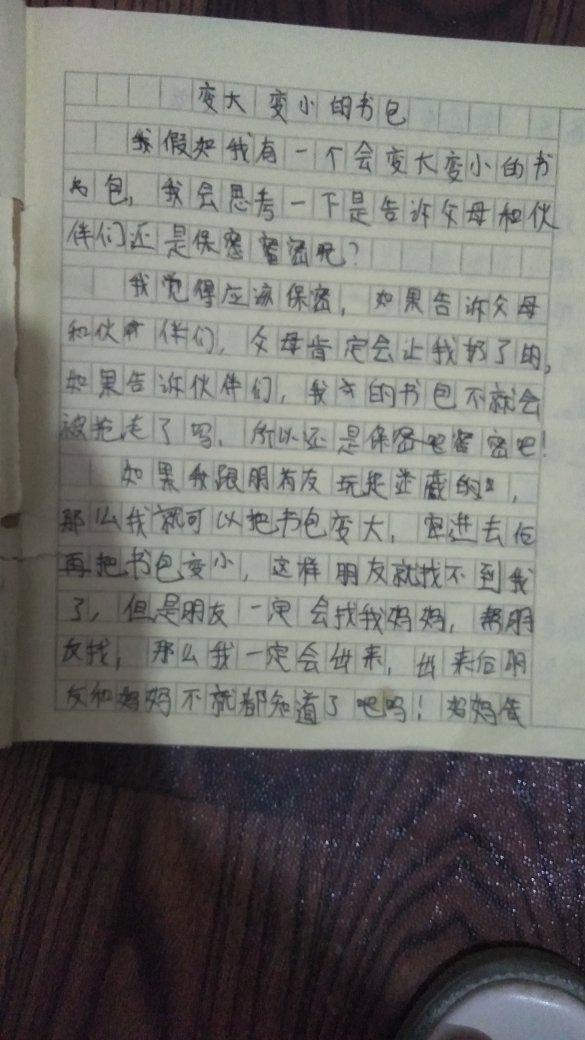 变大变小的书包
我假如我有一个会变大变小的书
包，我会思考一下是告诉父母和伙
伴们还是保密吧？
我觉得应该保密，如果告诉父母
和伙伴们，父母肯定会让我扔了的，
如果告诉伙伴们，我的书包不就会
被抢走了吗，所以还是保密吧！
如果我跟朋友玩捉迷藏的，
那么我就可以把书包变大，进去后
再把书包变小，这样朋友就找不到我
了，但是朋友一定会找我妈妈，帮朋
友找，那么我一定会出来，出来后朋
友和妈妈不就都知道了吧吗！妈妈告